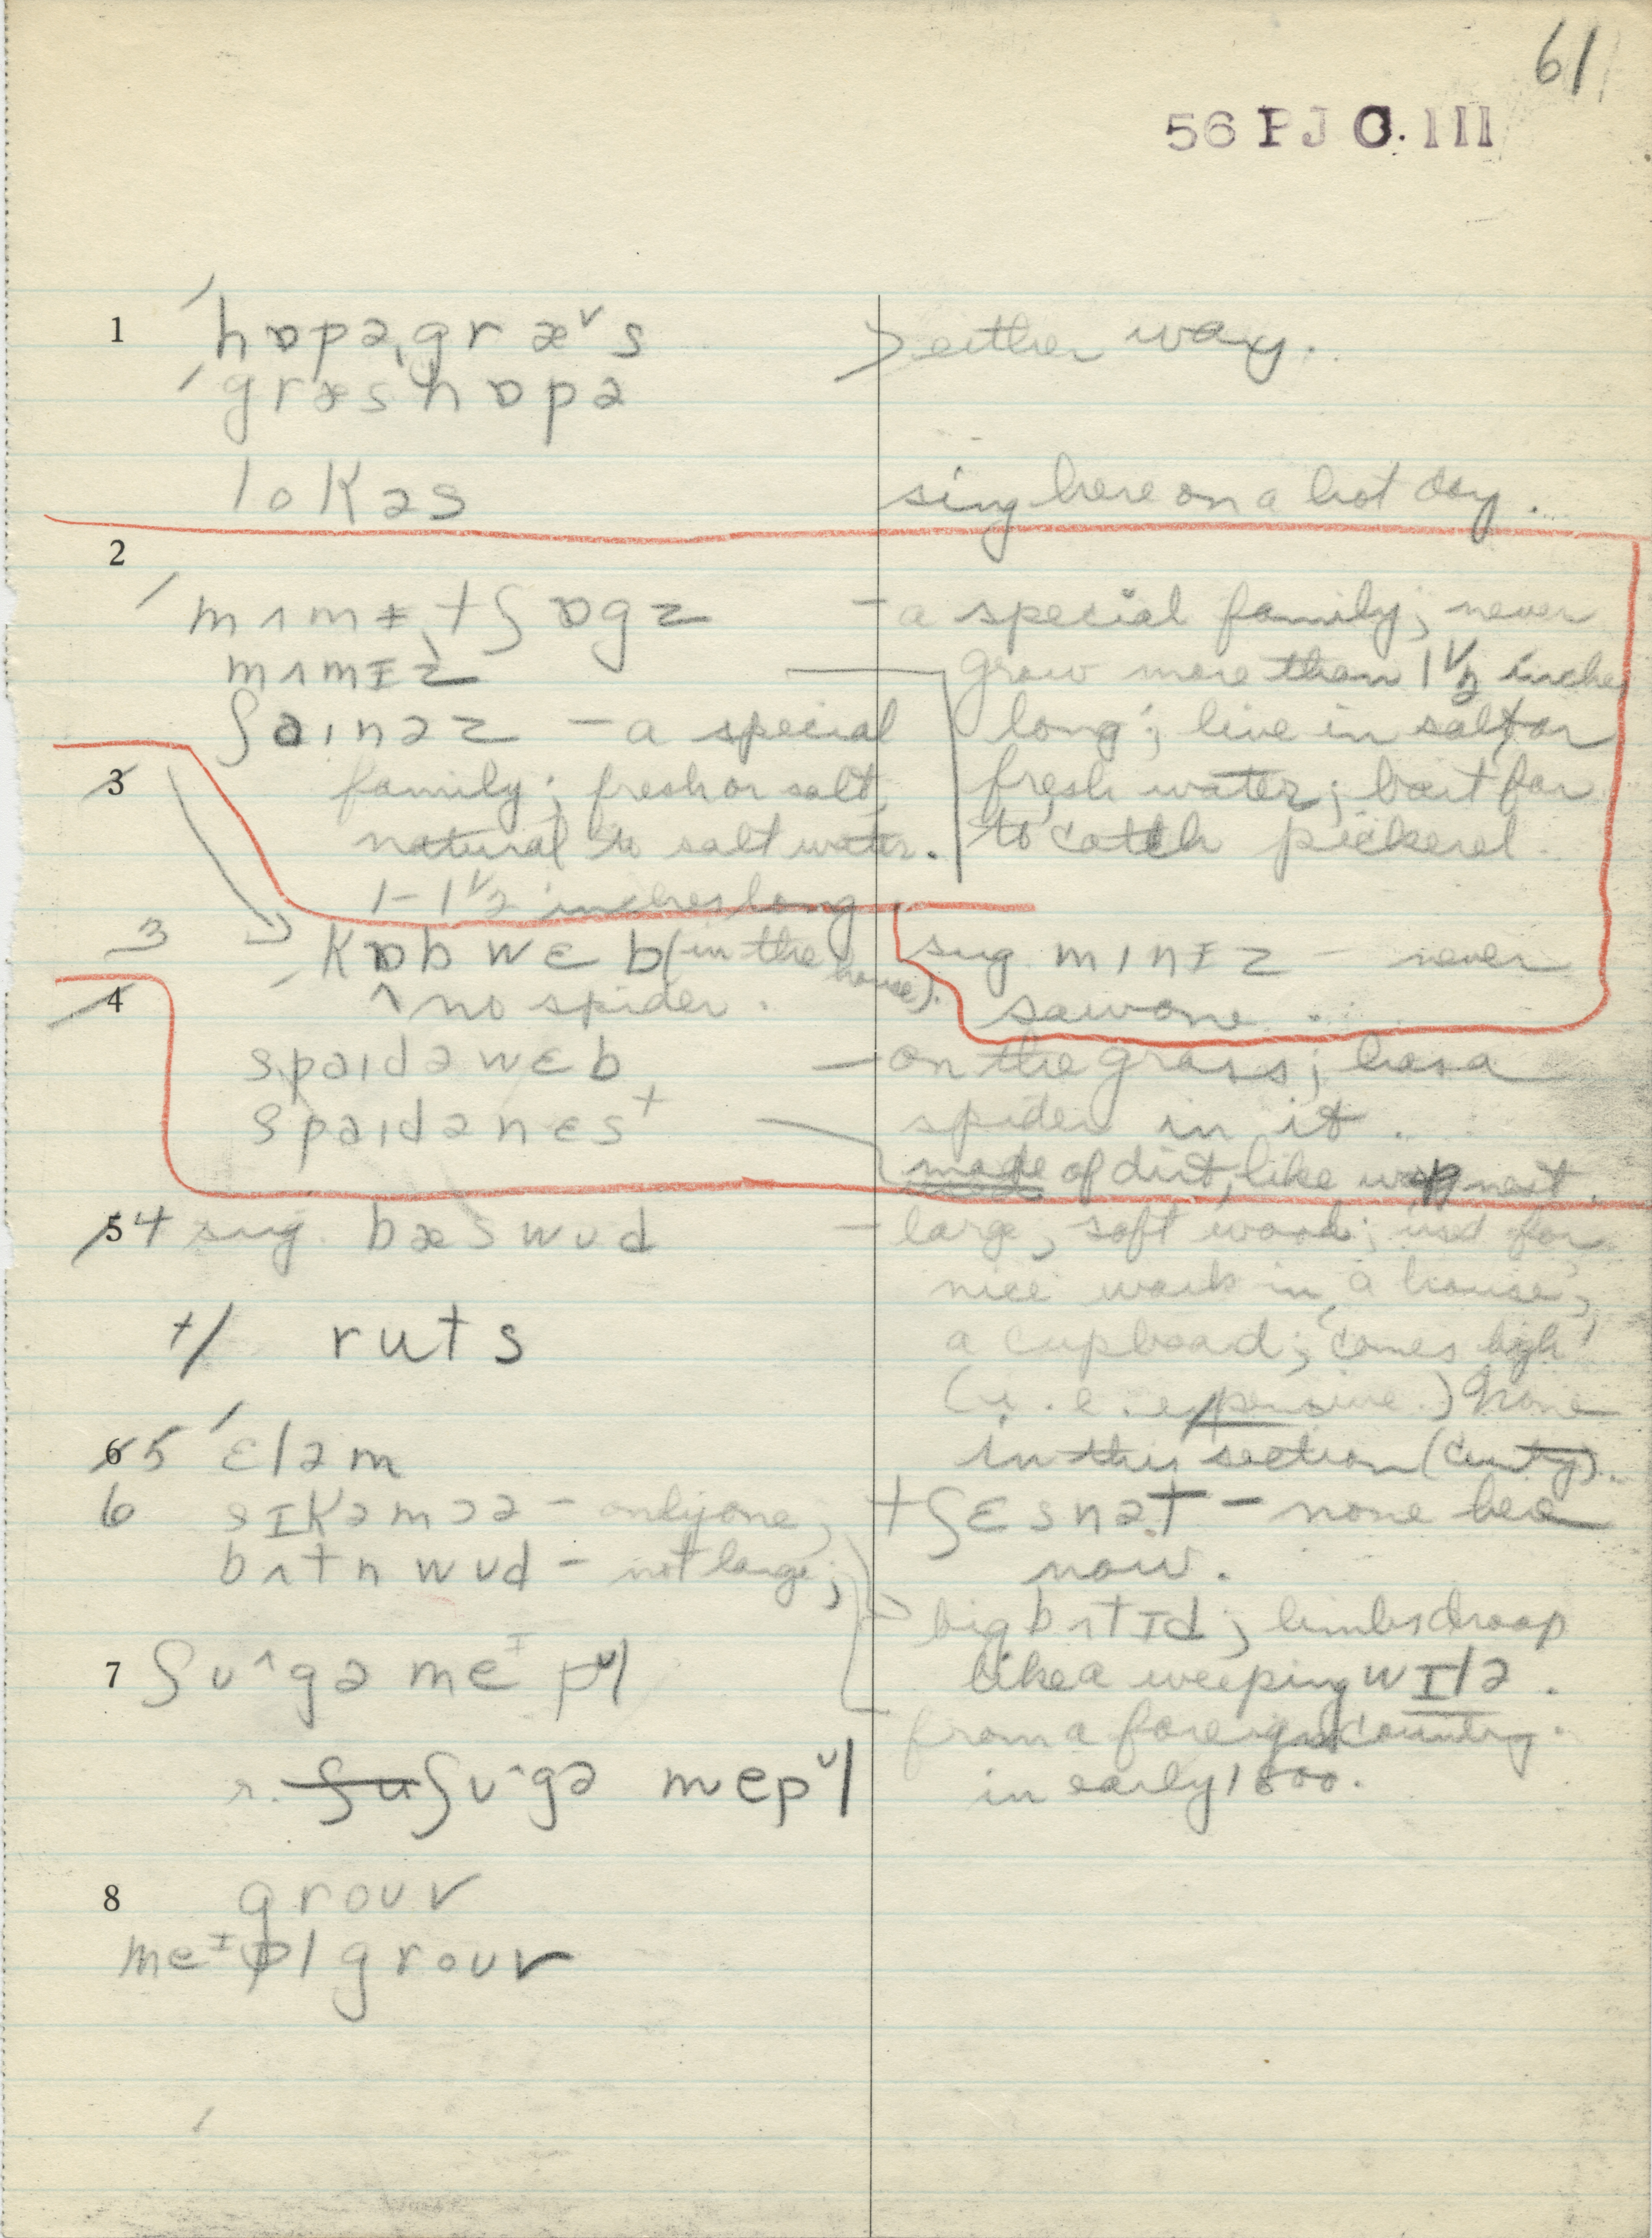 61
56 PJ C. III
1 ˈhɒpəˌgræ˅s > either way.
ˈgræshɒpə
lokəs sing here on a hot day.
2
ˈmʌmɨˌtʃɒgz – a special family; never
mʌmɪz grow more than 1 1/2 inches
ʃɑɪnəz – a special long; live in salt or
3 family; fresh or salt, fresh water; bait for
natural to salt water. to catch pickerel.
1 – 1 1/2 inches long
3 kɒbwɛb (in the house). sug. mɪnɪz – never
4 ^ no spider. saw one.
spaɪdəwɛb – on the grass; has a
spaɪdənɛst spider in it.
made of dirt, like wasp nest.
5 4 sug. bæswud – large, soft wood; used for
nice work in a house,
+/ ruts a cupboard; "comes high"
(i.e. expensive.) None
6 5 ˈɛləm in this section (county).
6 sɪkəmɔə – only one; tʃɛsnət – none here
bʌtnwud – not large; now.
big bʌtɪd; limbs droop
7 ʃu^gə meᶦpl like a weeping wɪlə.
from a foreign country.
r. ʃu ʃu^gə mepl in early 1800.
8 grouv
meᶦpl grouv